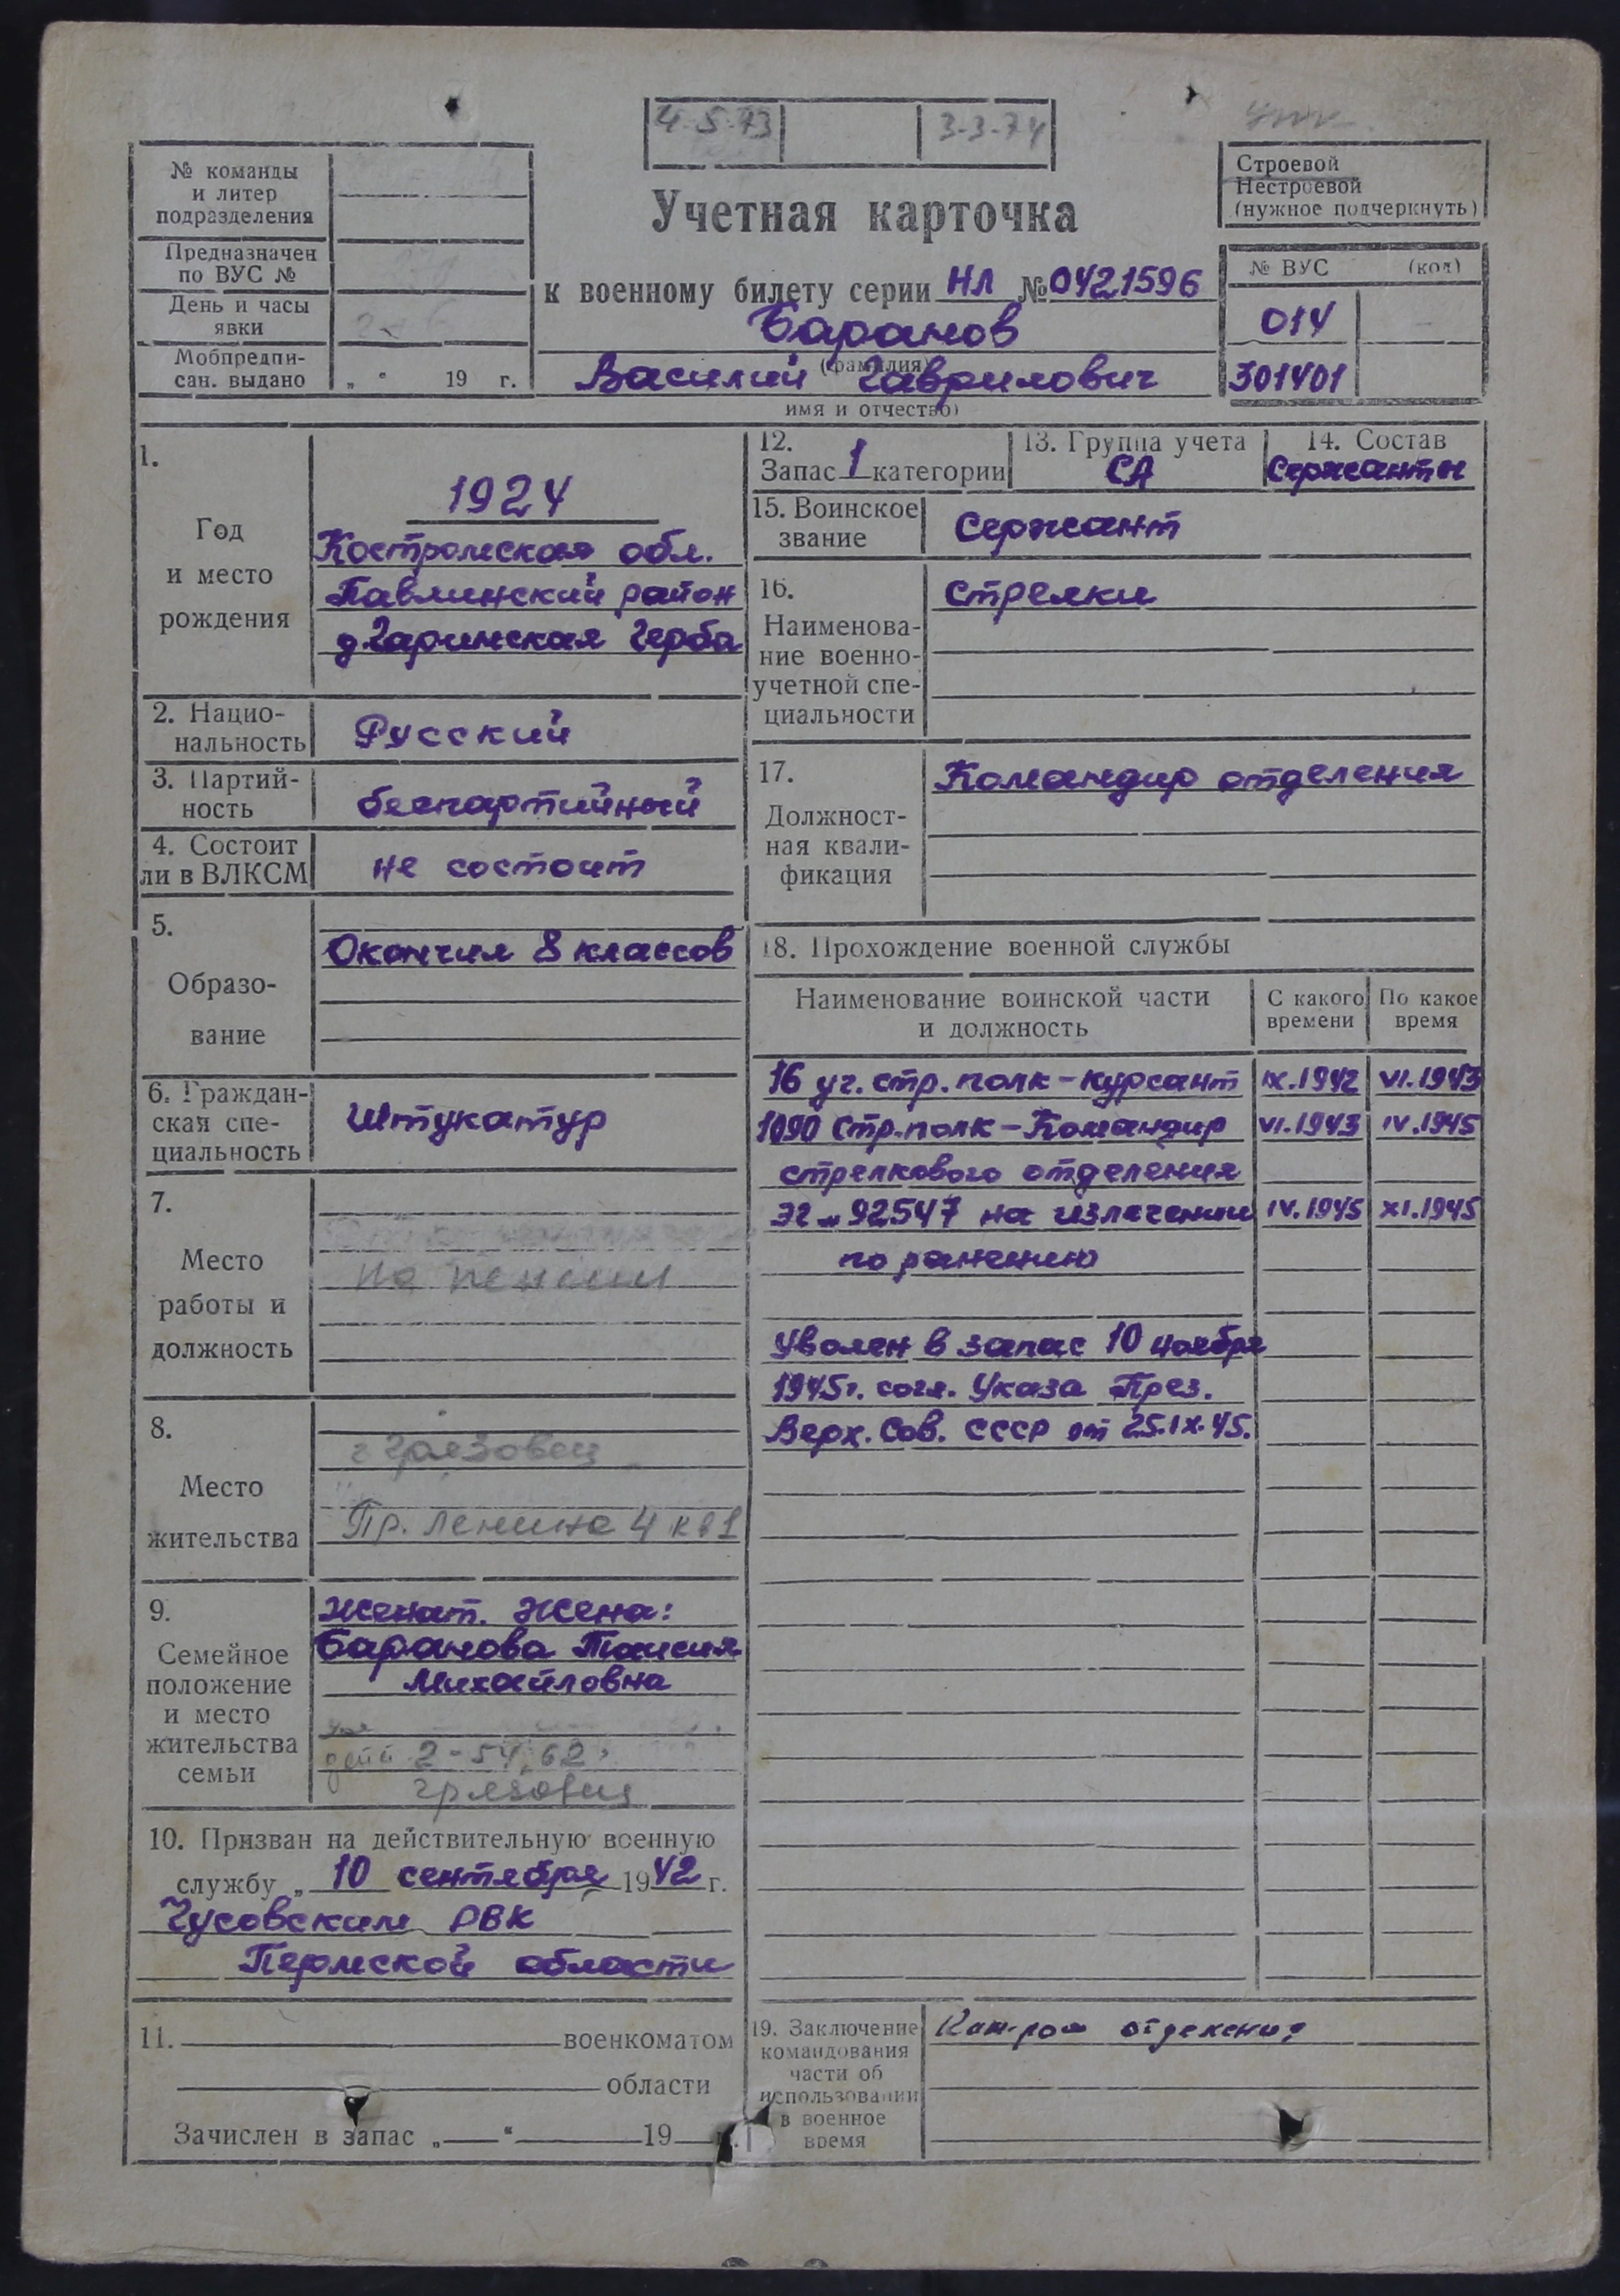 4-5-73
3-3-74
№ команды
и литер
подразделения
Предназначен
по ВУС №
День и часы
явки
Мобпредпи-
сан. выдано „ “ 19 г.
Учетная карточка
к военному билету серии НЛ № 0421596
Баранов
(фамилия)
Василий Гаврилович
имя и отчество)
Строевой
Нестроевой
(нужное подчеркнуть)
№ ВУС (код)
014
301401
1.
Год
и место
рождения
1924
Костромская обл.
Павлинский район
д. Гаринская Черба
2. Нацио-
нальность
Русский
3. Партий-
ность
беспартийный
4. Состоит
ли в ВЛКСМ
не состоит
5.
Образо-
вание
Окончил 8 классов
6. Граждан-
ская спе-
циальность
Штукатур
7.
Место
работы и
должность
на пенсии
8.
Место
жительства
г Грязовец
Пр. Ленина 4 кв 1
9.
Семейное
положение
и место
жительства
семьи
Женат. Жена:
Баранова Таисия
Михайловна
дети 2-54, 62
Грязовец
10. Призван на действительную военную
службу „ 10 сентября 1942 г.
Чусовским РВК
Пермской области
11. военкоматом
области
Зачислен в запас „ “ 19
12.
Запас 1 категории
13. Группа учета
СА
14. Состав
Сержанты
15. Воинское
звание
Сержант
16.
Наименова-
ние военно-
учетной спе-
циальности
Стрелки
17.
Должност-
ная квали-
фикация
Командир отделения
18. Прохождение военной службы
Наименование воинской части
и должность
С какого
времени
По какое
время
16 уч. стр. полк - курсант IX.1942 VI.1943
1090 Стр. полк - Командир VI.1943 IV.1945
стрелкового отделения
ЭГ - 92547 на излечении IV.1945 XI.1945
по ранению
Уволен в запас 10 ноября
1945 г. согл. Указа През.
Верх. Сов. СССР от 25.IX.45.
19. Заключение
командования
части об
использовании
в военное
время
Ком-ром отделения